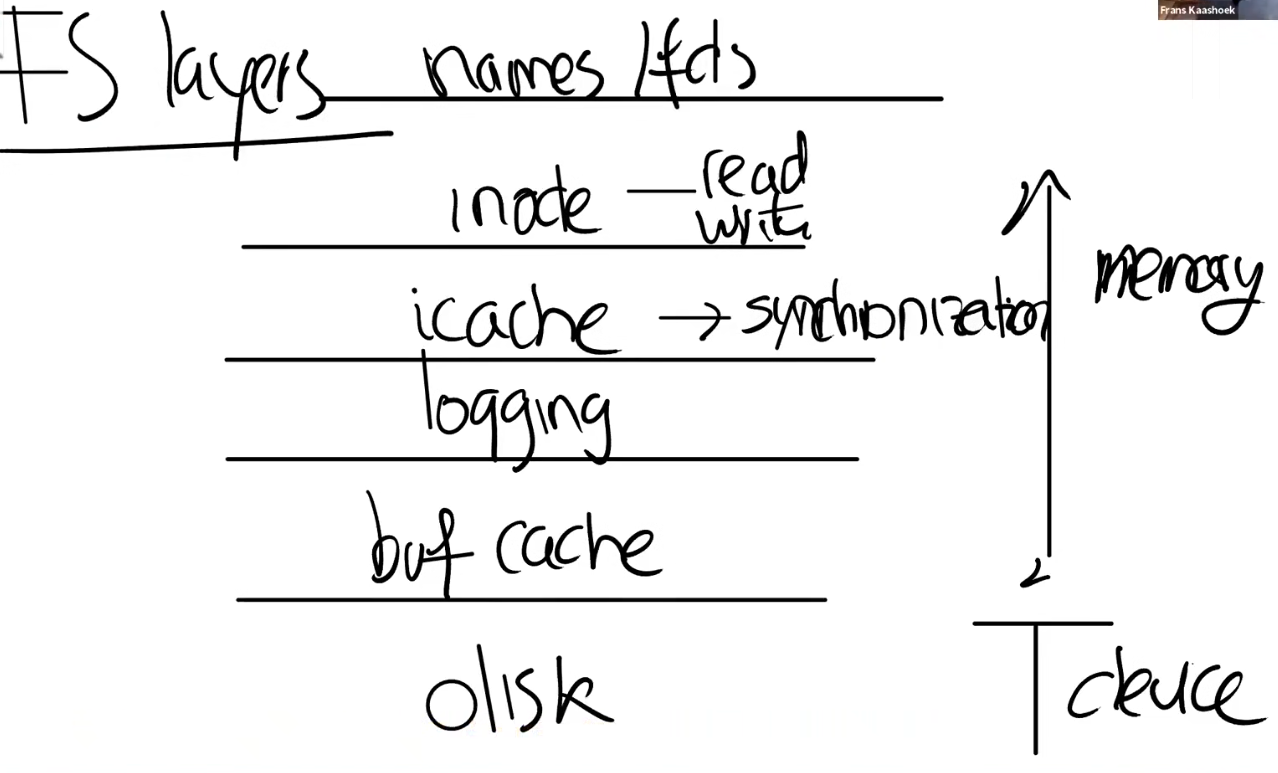 Frans Kaashoek
FS layers names/fds
inode — read
write
icache → synchronization
memory
logging
buf cache
disk
device